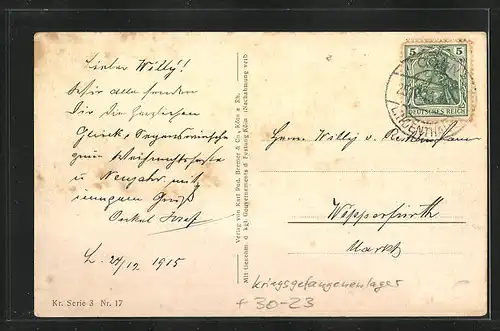 Lieber Willy!
Wir alle senden
Dir die herzlichsten
Glück & Segenswünsche
zum Weihnachtsfeste
u Neujahr mit
innigem Gruß
Onkel Josef
L. 24/12 1915
Kr. Serie 3 Nr. 17
Verlag von Karl Rud. Bremer & Co., Köln a. Rh.
Mit Genehm. d. kgl. Gouvernements d. Festung Köln. (Nachahmung verb.
5 5
DEUTSCHES REICH
Herrn Willy v.
Wipperfürth
Markt
Kriegsgefangenenlager
+ 30-23